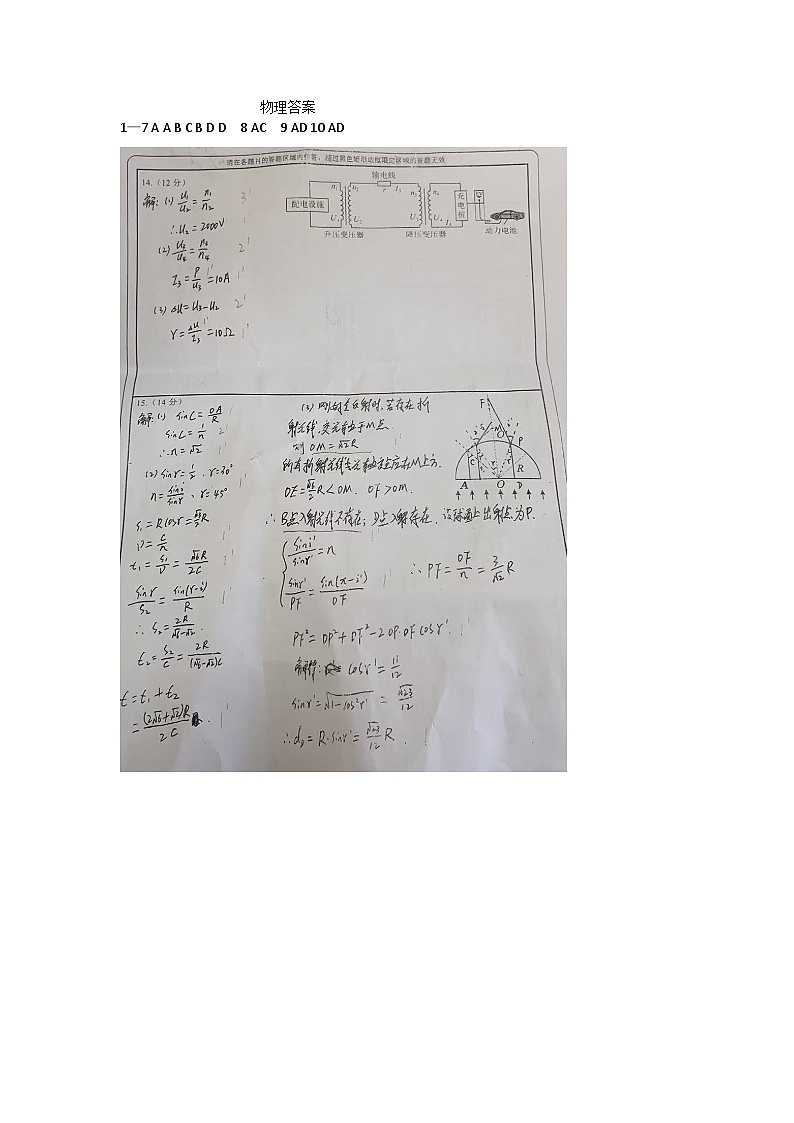 物理答案
1—7 A A B C B D D 8 AC 9 AD 10 AD
请在各题目的答题区域内作答，超过黑色矩形边框限定区域的答题无效
14.（12分）
解: (1) U₁/U₂ = n₁/n₂ 3'
∴U₂ = 2000V 1'
(2) U₃/U₄ = n₃/n₄ 2'
I₃ = P/U₃ 1' = 10A 1'
(3) ΔU = U₃-U₂ 2'
r = ΔU/I₃ 1' = 10Ω 1'
输电线
n₁ n₂ r I₃ n₃ n₄
配电设施
U₁ U₂ U₃ U₄ I₄
充电桩
升压变压器 降压变压器 动力电池
15.（14分）
解: (1) sinC = OA/R 1'
sinC = 1/n 2'
∴n = √2 1'
(2) sinr = 1/2 、r = 30°
n = sini/sinr 、r = 45° 1'
s₁ = Rcosr = √3/2 R
v = c/n
t₁ = s₁/v = √6R/2c 1'
sinr/s₂ = sin(r-i)/R 1'
∴ s₂ = 2R/(√6-√2)
t₂ = s₂/c = 2R/((√6-√2)c)
t = t₁ + t₂
= (2√6+√2)R/2c 1'
(3) 刚好全反射时, 若存在折
射光线, 交光轴于M点
则 OM = √2R 1'
所有折射光线与光轴交点应在M上方.
OE = √3/2 R < OM. OF > OM.
∴ B点入射光线不存在; D点入射存在. 设球面上出射点为P.
sini'/sinr' = n
sinr'/PF = sin(π-i')/OF 1'
∴ PF = OF/n = 3/√2 R
PF² = OP² + OF² - 2OP·OF cosr'. 1'
解得: cosr' = 11/12
sinr' = √(1-cos²r') = √23/12
∴d₂ = R·sinr' = √23/12 R. 1'
F
M P
C R
A O D